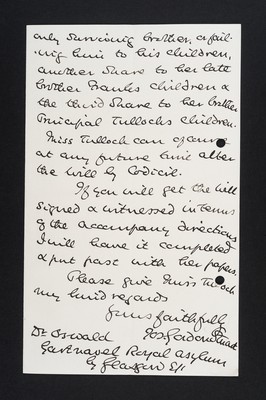 only surviving brother, or fail-
-ing him to his children,
another share to her late
brother Frank's children &
the third share to her brother
Principal Tulloch's children.
Miss Tulloch can of course
at any future time alter
the will by Codicil.
If you will get the Will
signed & witnessed in terms
of the accompany directions
I will have it completed
& put past with her papers.
Please give Miss Tulloch
my kind regards
Yours faithfully
Dr Oswald
Gartnavel Royal Asylum
by Glasgow